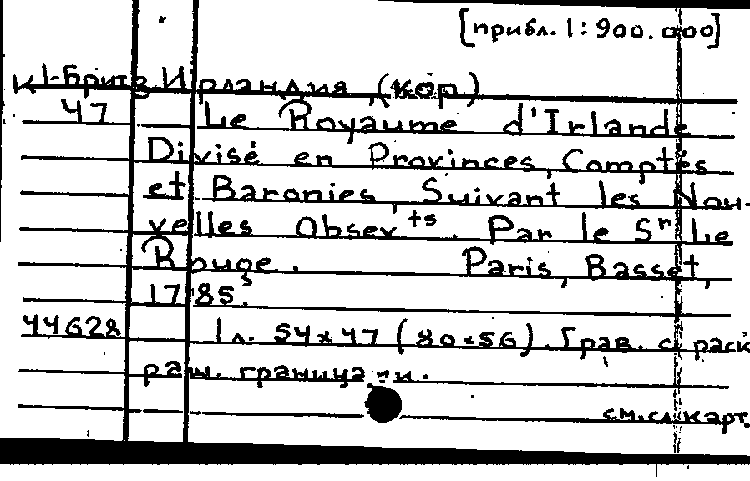 [прибл. 1:900.000]
К 1-Брит Ирландия (кор)
47 Le Royaume d'Irlande
Divisé en Provinces, Comptés
et Baronies, Suivant les Nou-
velles Obser^ts. Par le S^r Le
Rouge. Paris, Basset,
1785.
44628 1 л. 54×47 (80×56). Грав. с раск
раш. границами.
см. сл. карт.